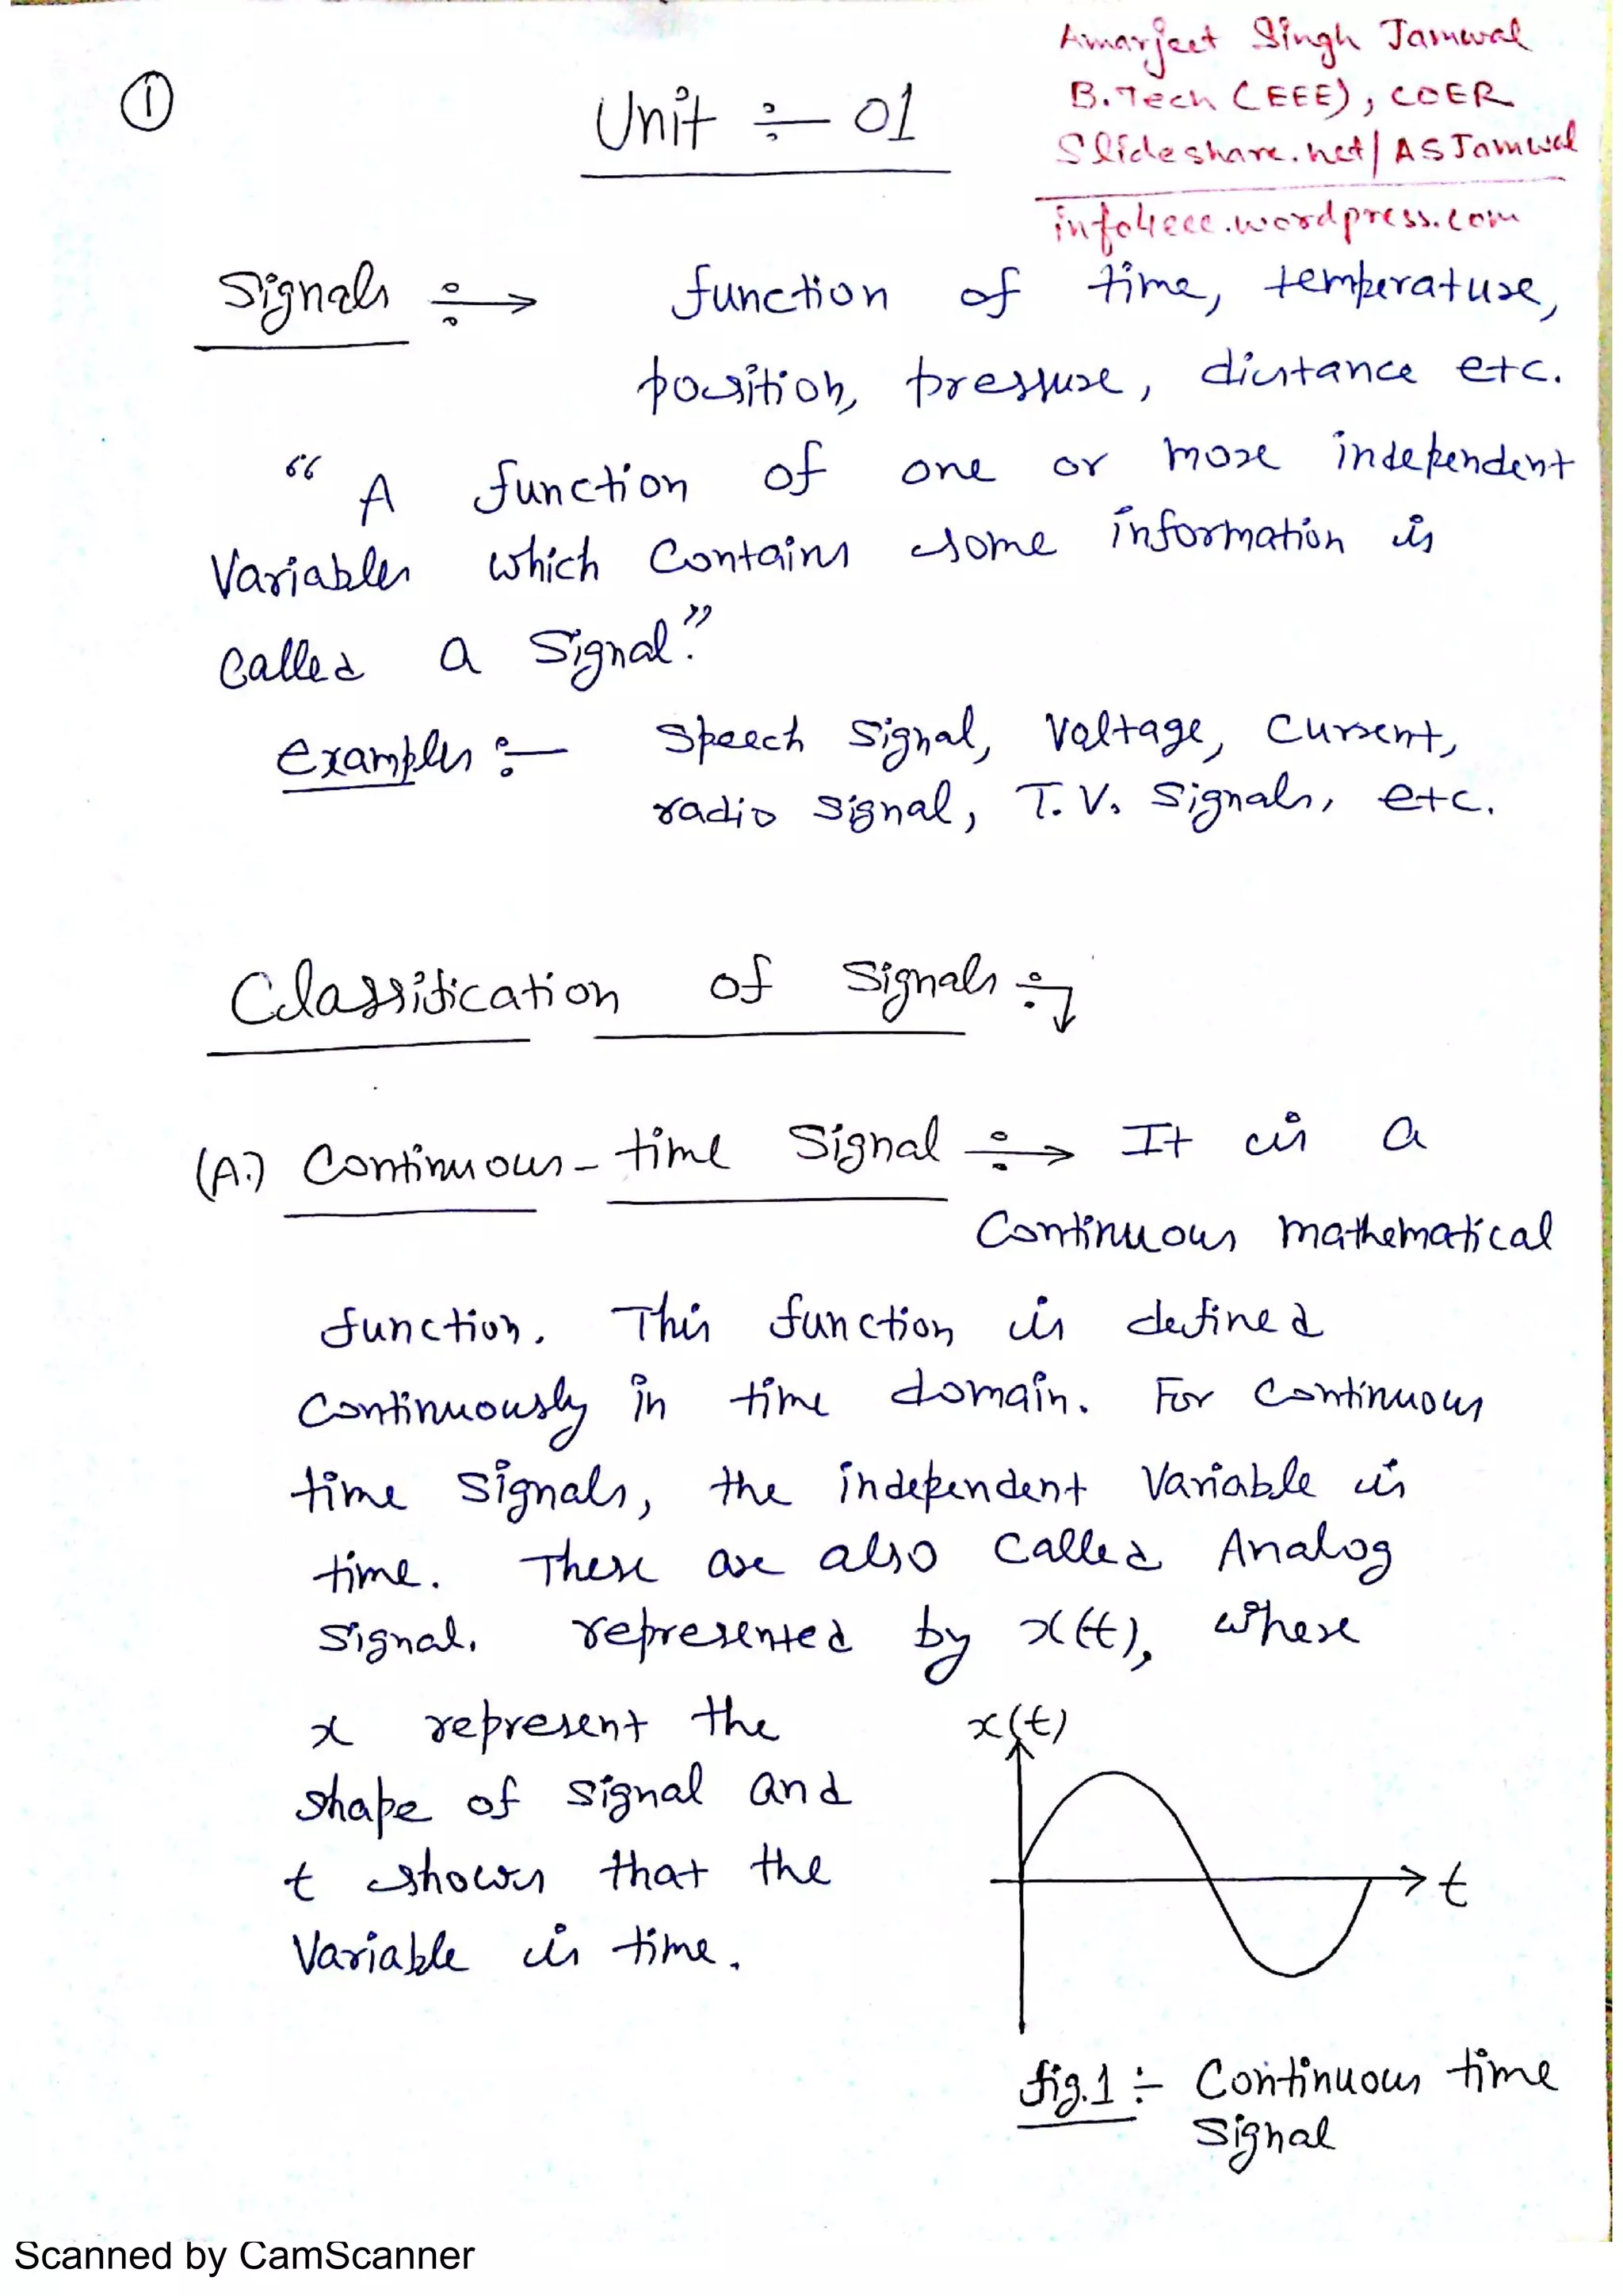 ①
Unit ÷ 01
Amarjeet Singh Jamwal
B.Tech (EEE), COER
Slideshare.net/ASJamwal
info4eee.wordpress.com
Signals ÷→ function of time, temperature,
position, pressure, distance etc.
“ A function of one or more independent
Variables which Contains some information is
Called a Signal.”
examples :- Speech Signal, Voltage, Current,
radio Signal, T.V. Signals, etc.
Classification of Signals ÷↴
(A.) Continuous-time Signal ÷→ It is a
Continuous mathematical
function. This function is defined
Continuously in time domain. For Continuous
time Signals, the independent Variable is
time. These are also Called Analog
Signal. represented by x(t), where
x represent the
shape of Signal and
t shows that the
Variable is time.
x(t)
t
fig.1 ÷ Continuous time
Signal
Scanned by CamScanner